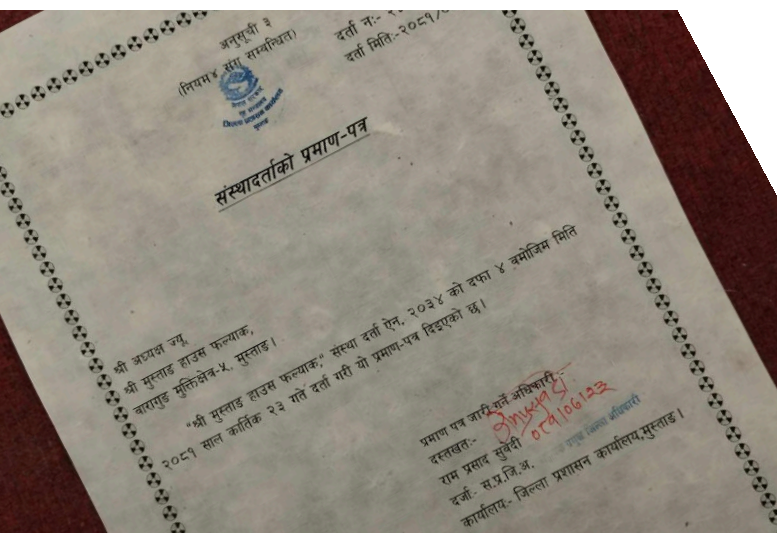 अनुसूची ३
(नियम ४ संग सम्बन्धित)
दर्ता न:-
दर्ता मिति:-२०८१/
जिल्ला प्रशासन कार्यालय
संस्थादर्ताको प्रमाण-पत्र
श्री अध्यक्ष ज्यू,
श्री मुस्ताङ हाउस फल्याक,
वारागुङ मुक्तिक्षेत्र-५, मुस्ताङ।
"श्री मुस्ताङ हाउस फल्याक," संस्था दर्ता ऐन, २०३४ को दफा ४ वमोजिम मिति
२०८१ साल कार्तिक २३ गते दर्ता गरी यो प्रमाण-पत्र दिइएको छ।
प्रमाण पत्र जारी गर्ने अधिकारी:-
दस्तखत:-
राम प्रसाद सुवेदी
प्रमुख जिल्ला अधिकारी
दर्जा:- स.प्र.जि.अ.
कार्यालय:- जिल्ला प्रशासन कार्यालय,मुस्ताङ।